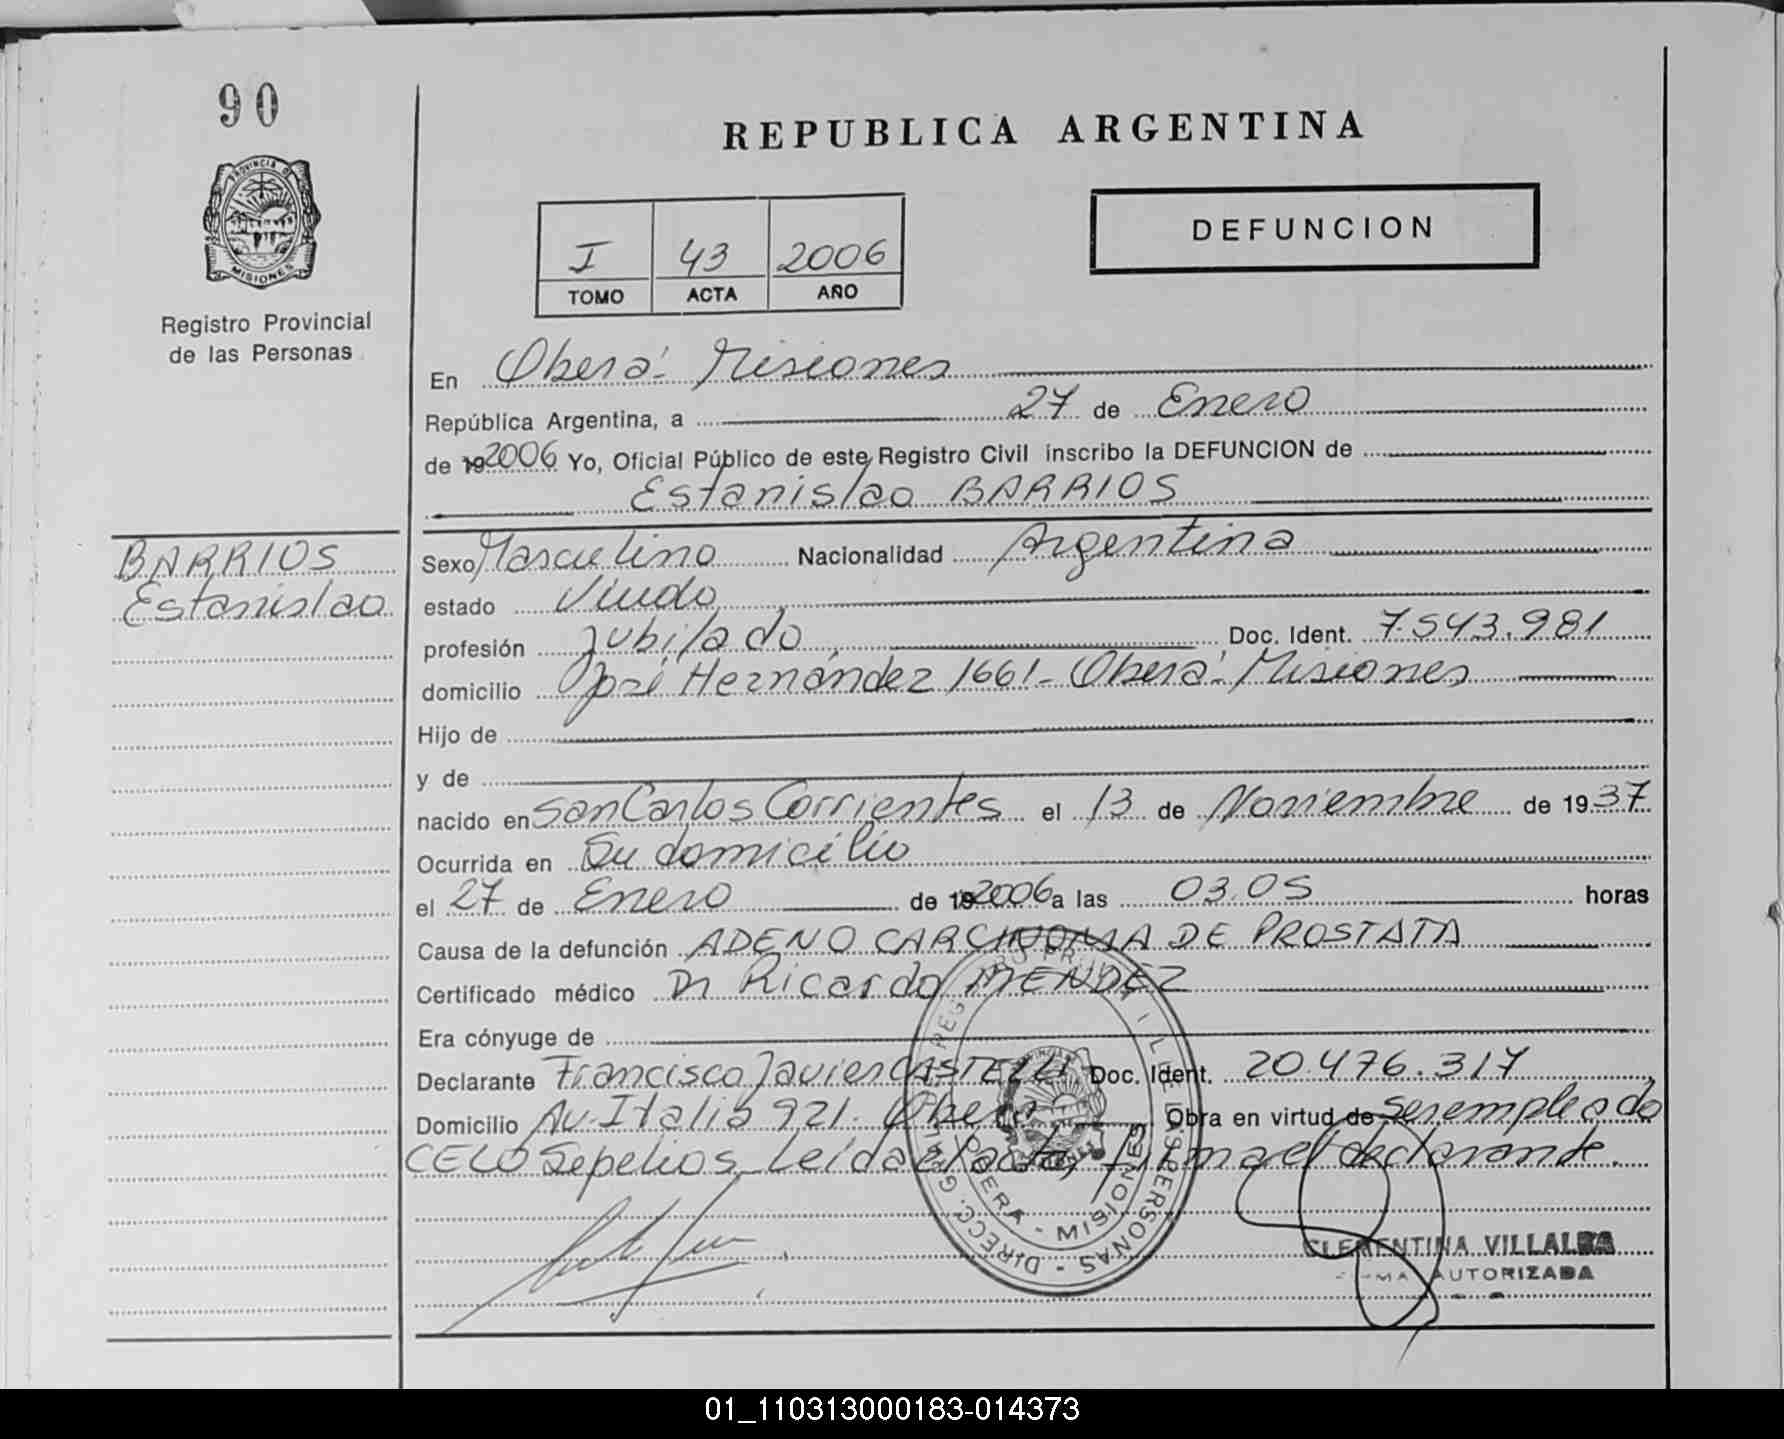 90
PROVINCIA DE
MISIONES
Registro Provincial
de las Personas
REPUBLICA ARGENTINA
I 43 2006
TOMO ACTA AÑO
DEFUNCION
En Oberá - Misiones
República Argentina, a 27 de Enero
de 192006 Yo, Oficial Público de este Registro Civil inscribo la DEFUNCION de
Estanislao BARRIOS
BARRIOS
Estanislao
Sexo Masculino Nacionalidad Argentina
estado Viudo
profesión Jubilado Doc. Ident. 7.543.981
domicilio José Hernández 1661 - Oberá - Misiones
Hijo de
y de
nacido en San Carlos Corrientes el 13 de Noviembre de 1937
Ocurrida en Su domicilio
el 27 de Enero de 192006 a las 03.05 horas
Causa de la defunción ADENO CARCINOMA DE PROSTATA
Certificado médico Dr Ricardo MENDEZ
Era cónyuge de
Declarante Francisco Javier CASTELLI Doc. Ident. 20.476.317
Domicilio Av. Italia 921 - Oberá Obra en virtud de ser empleado
CELO Sepelios Leída el acta, firma el declarante.
OBERA - MISIONES
CLEMENTINA VILLALBA
AUTORIZADA
01_110313000183-014373